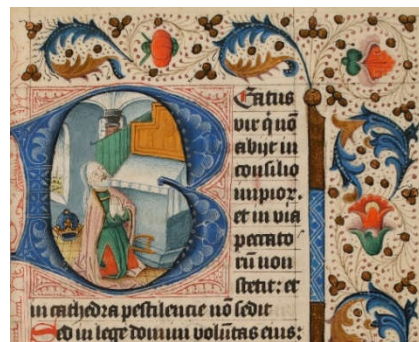 Beatus
vir q̇ nō
abijt in
consilio
impioꝝ.
et in via
peccato
rū non
stetit: et
in cathedra pestilencie nō sedit
Sed in lege domini volūtas eius: